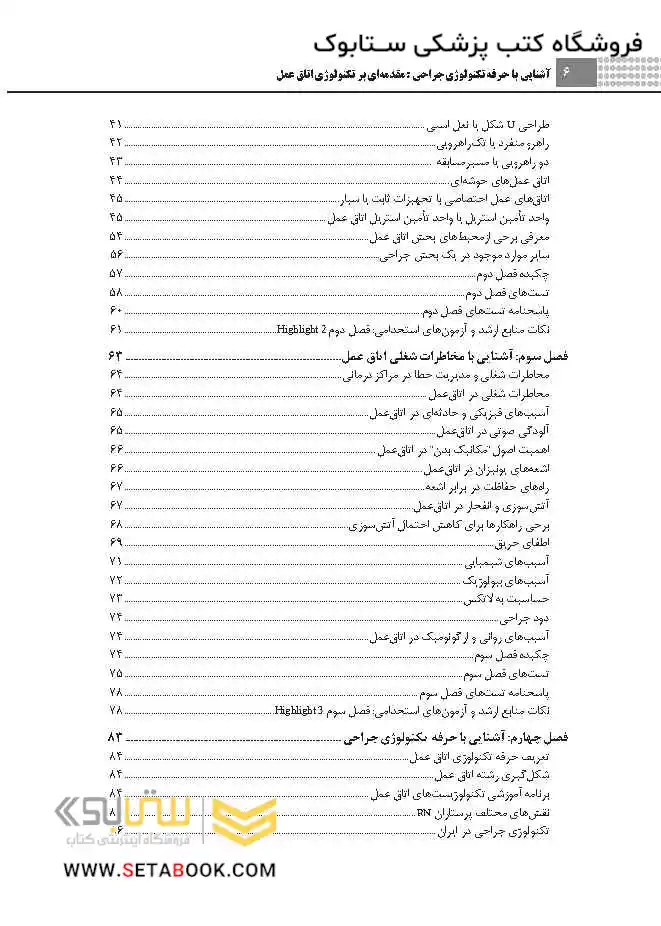 فروشگاه کتب پزشکی ستابوک
۶ آشنایی با حرفه تکنولوژی جراحی : مقدمه‌ای بر تکنولوژی اتاق عمل
طراحی U شکل یا نعل اسبی ۴۱
راهرو منفرد یا تک‌راهرویی ۴۲
دو راهرویی یا مسیر مسابقه ۴۳
اتاق عمل‌های خوشه‌ای ۴۴
اتاق‌های عمل اختصاصی با تجهیزات ثابت یا سیار ۴۵
واحد تأمین استریل یا واحد تأمین استریل اتاق عمل ۴۵
معرفی برخی از محیط‌های بخش اتاق عمل ۵۴
سایر موارد موجود در یک بخش جراحی ۵۶
چکیده فصل دوم ۵۷
تست‌های فصل دوم ۵۸
پاسخنامه تست‌های فصل دوم ۶۰
نکات منابع ارشد و آزمون‌های استخدامی: فصل دوم Highlight 2 ۶۱
فصل سوم: آشنایی با مخاطرات شغلی اتاق عمل ۶۳
مخاطرات شغلی و مدیریت خطا در مراکز درمانی ۶۴
مخاطرات شغلی در اتاق‌عمل ۶۴
آسیب‌های فیزیکی و حادثه‌ای در اتاق‌عمل ۶۵
آلودگی صوتی در اتاق‌عمل ۶۵
اهمیت اصول "مکانیک بدن" در اتاق‌عمل ۶۶
اشعه‌های یونیزان در اتاق‌عمل ۶۶
راه‌های حفاظت در برابر اشعه ۶۷
آتش‌سوزی و انفجار در اتاق‌عمل ۶۷
برخی راهکارها برای کاهش احتمال آتش‌سوزی ۶۸
اطفای حریق ۶۹
آسیب‌های شیمیایی ۷۱
آسیب‌های بیولوژیک ۷۲
حساسیت به لاتکس ۷۳
دود جراحی ۷۴
آسیب‌های روانی و ارگونومیک در اتاق‌عمل ۷۴
چکیده فصل سوم ۷۴
تست‌های فصل سوم ۷۵
پاسخنامه تست‌های فصل سوم ۷۸
نکات منابع ارشد و آزمون‌های استخدامی: فصل سوم Highlight 3 ۷۸
فصل چهارم: آشنایی با حرفه تکنولوژی جراحی ۸۳
تعریف حرفه تکنولوژی اتاق عمل ۸۴
شکل‌گیری رشته اتاق عمل ۸۴
برنامه آموزشی تکنولوژیست‌های اتاق عمل ۸۴
نقش‌های مختلف پرستاران RN
تکنولوژی جراحی در ایران
ستابوک
فروشگاه اینترنتی کتاب
WWW.SETABOOK.COM